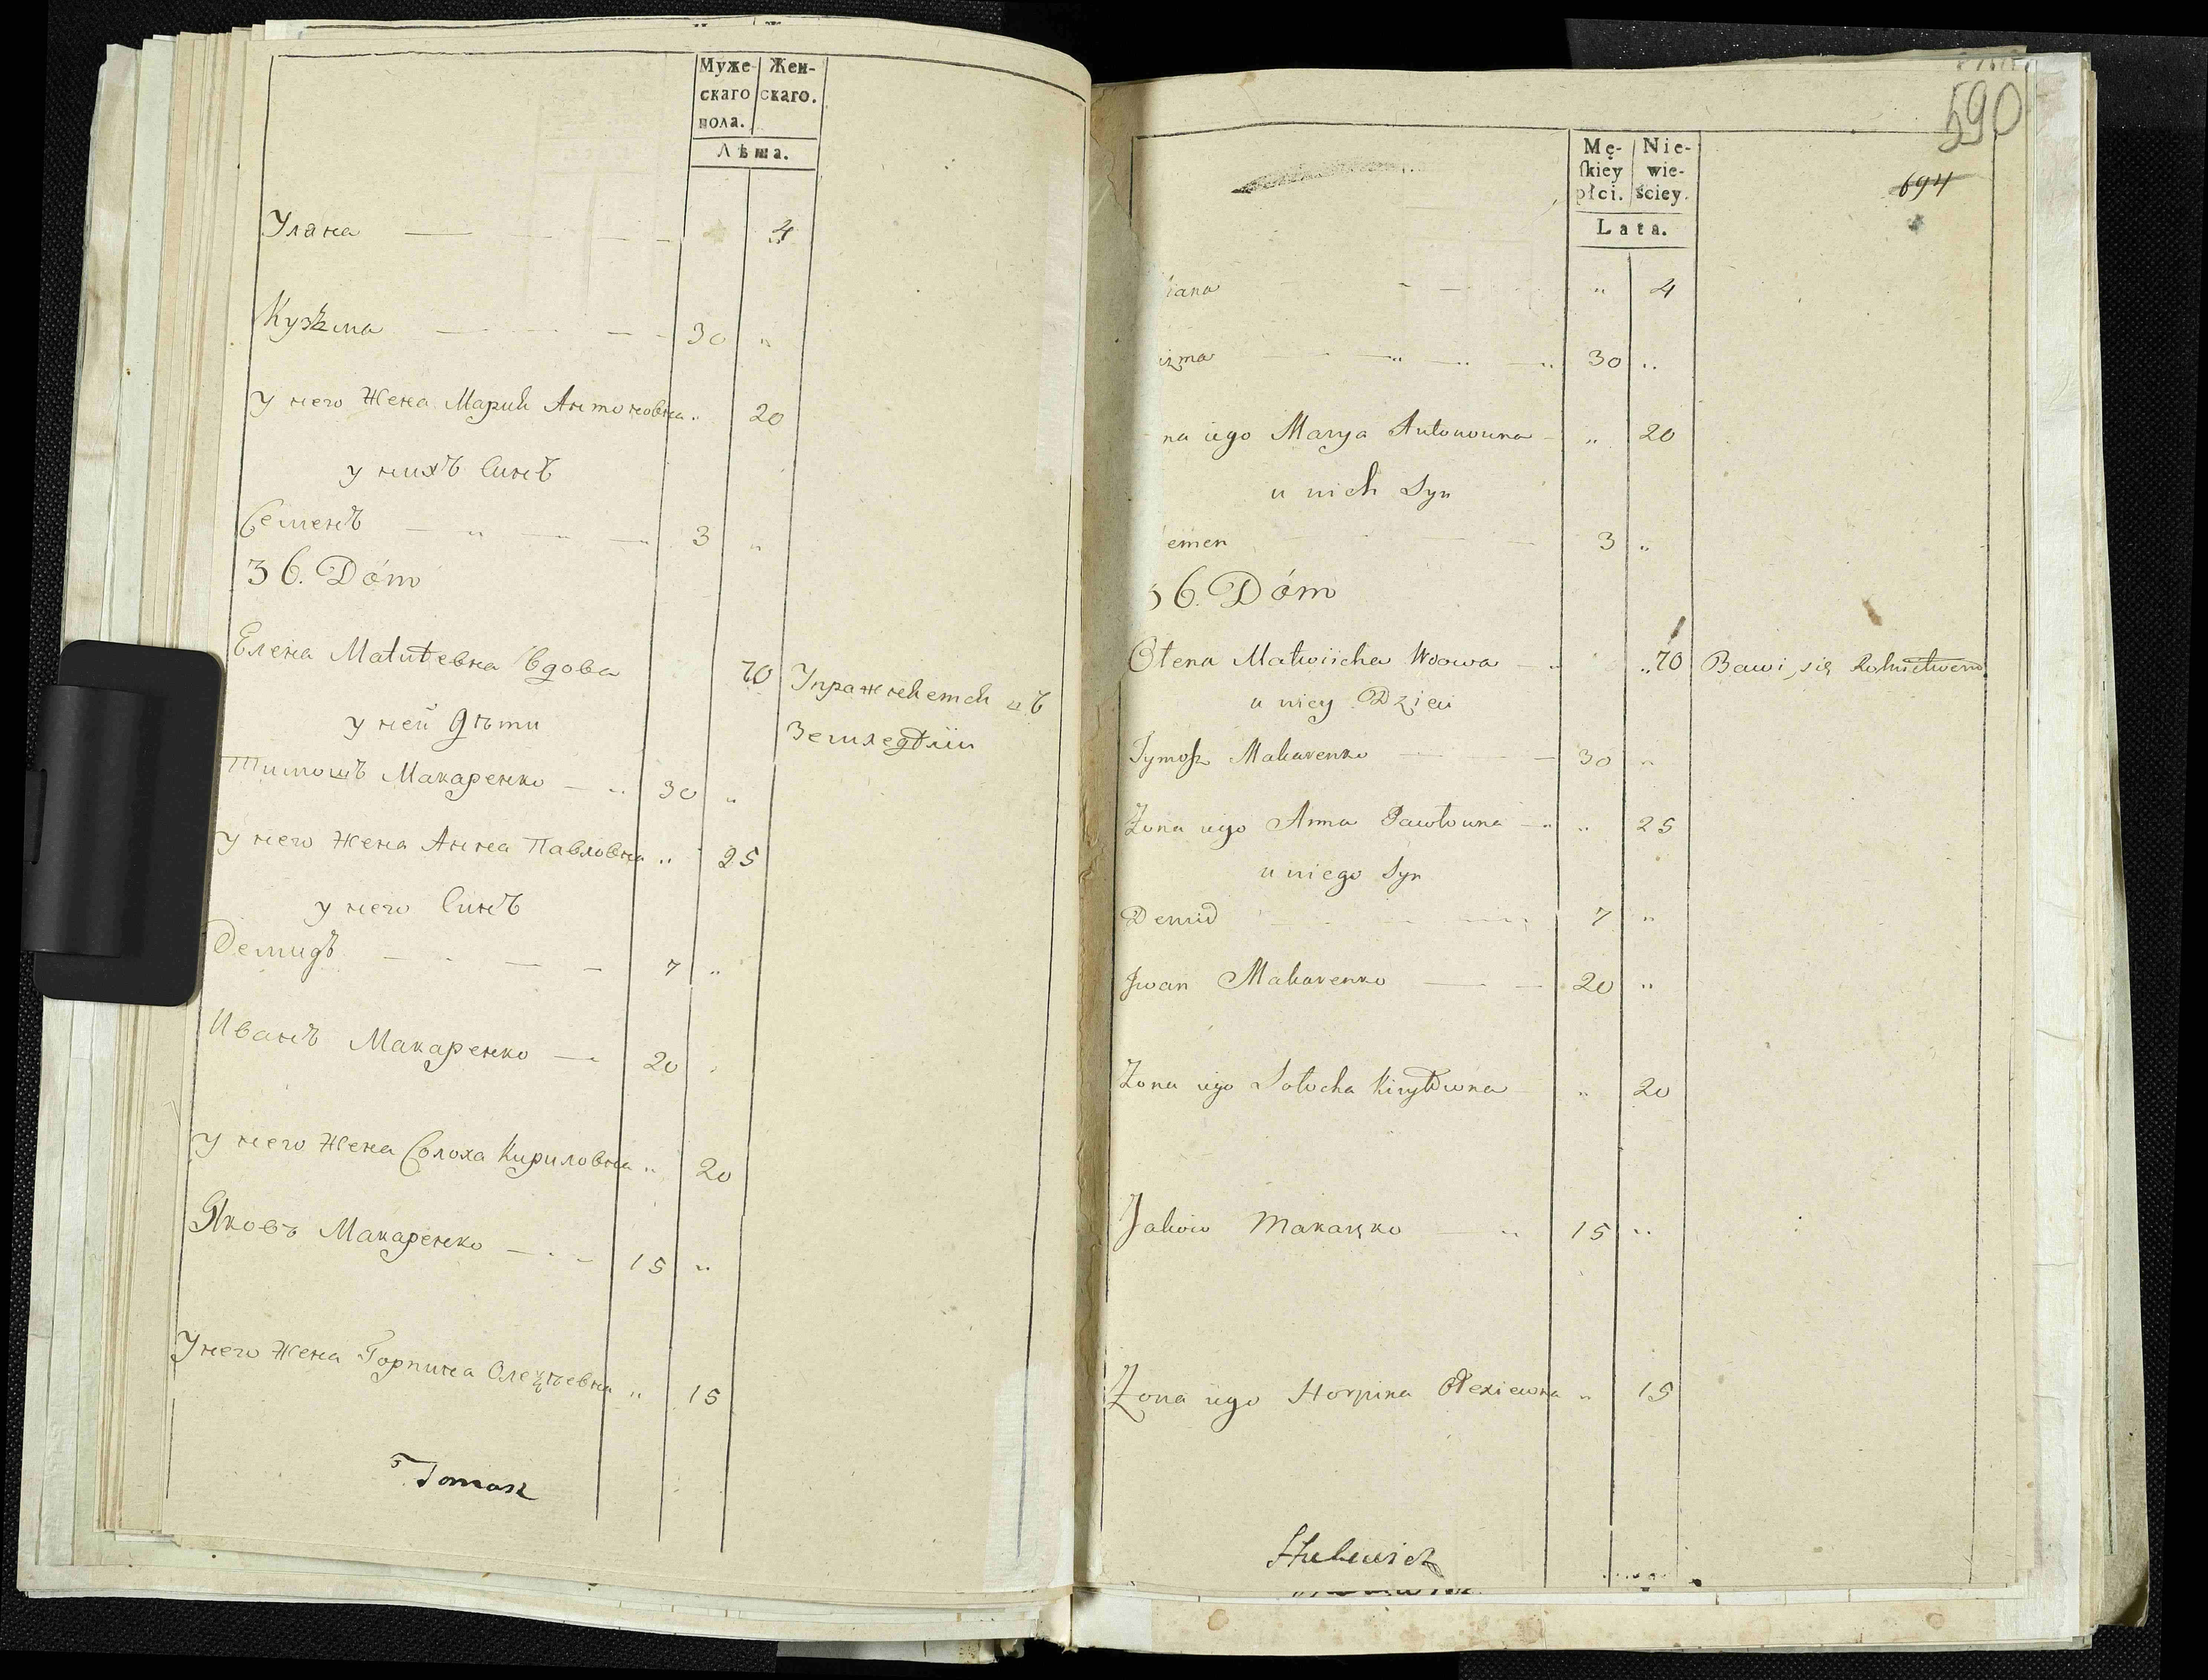 Муже- Жен-
скаго скаго.
пола.
Лѣта.
Уляна 4
Кузьма 30 "
у него Жена Марія Антоновна " 20
у нихъ Синъ
Семенъ 3 "
36. Dóm
Елена Матвѣевна Вдова 70 Упражняется въ
у ней Дѣти Земледѣліи
Тимошъ Макаренко 30 "
у него Жена Анна Павловна " 25
у него Синъ
Демидъ 7 "
Иванъ Макаренко 20 "
у него Жена Солоха Кириловна " 20
Яковъ Макаренко 15 "
У него Жена Горпина Олеѯѣевна " 15
Tomasz
590
Mę- Nie-
ſkiey wie-
płci. ściey.
694
Lata.
iana " 4
uzma 30 "
na iego Marya Antonowna " 20
u nich Syn
emen 3 "
36. Dóm
Ołena Matwiicha Wdowa " 70 Bawi się Rolnictwem
u niey Dzieci
Tymosz Makarenko 30 "
Żona iego Anna Pawłowna " 25
u niego Syn
Demid 7 "
Jwan Makarenko 20 "
Żona iego Sołocha Kiryłowna " 20
Jakow 15 "
Żona iego Horpina Ołexiewna " 15